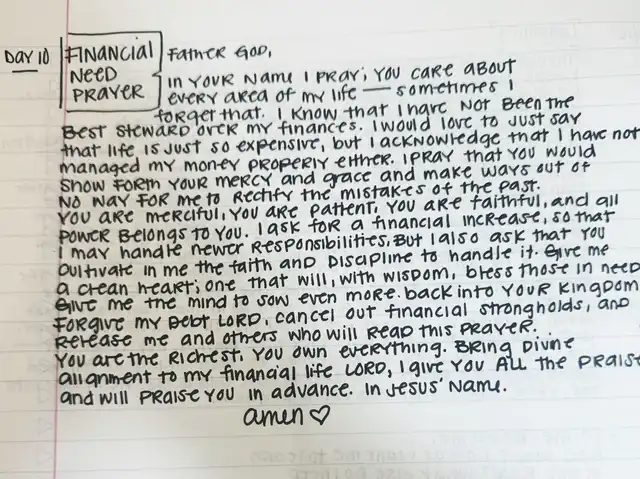 DAY 10
FINANCIAL
NEED
PRAYER
FATHER GOD,
IN YOUR NAME I PRAY; YOU CARE ABOUT
EVERY AREA OF MY LIFE — SOMETIMES I
FORGET THAT. I KNOW THAT I HAVE NOT BEEN THE
BEST STEWARD OVER MY FINANCES. I WOULD LOVE TO JUST SAY
THAT LIFE IS JUST SO EXPENSIVE, BUT I ACKNOWLEDGE THAT I HAVE NOT
MANAGED MY MONEY PROPERLY EITHER. I PRAY THAT YOU WOULD
SHOW FORTH YOUR MERCY AND GRACE AND MAKE WAYS OUT OF
NO WAY FOR ME TO RECTIFY THE MISTAKES OF THE PAST.
YOU ARE MERCIFUL, YOU ARE PATIENT, YOU ARE FAITHFUL, AND ALL
POWER BELONGS TO YOU. I ASK FOR A FINANCIAL INCREASE, SO THAT
I MAY HANDLE NEWER RESPONSIBILITIES, BUT I ALSO ASK THAT YOU
CULTIVATE IN ME THE FAITH AND DISCIPLINE TO HANDLE IT. GIVE ME
A CLEAN HEART; ONE THAT WILL, WITH WISDOM, BLESS THOSE IN NEED
GIVE ME THE MIND TO SOW EVEN MORE BACK INTO YOUR KINGDOM
FORGIVE MY DEBT LORD, CANCEL OUT FINANCIAL STRONGHOLDS, AND
RELEASE ME AND OTHERS WHO WILL READ THIS PRAYER.
YOU ARE THE RICHEST. YOU OWN EVERYTHING. BRING DIVINE
ALIGNMENT TO MY FINANCIAL LIFE LORD, I GIVE YOU ALL THE PRAISE
AND WILL PRAISE YOU IN ADVANCE. IN JESUS' NAME.
AMEN ♡